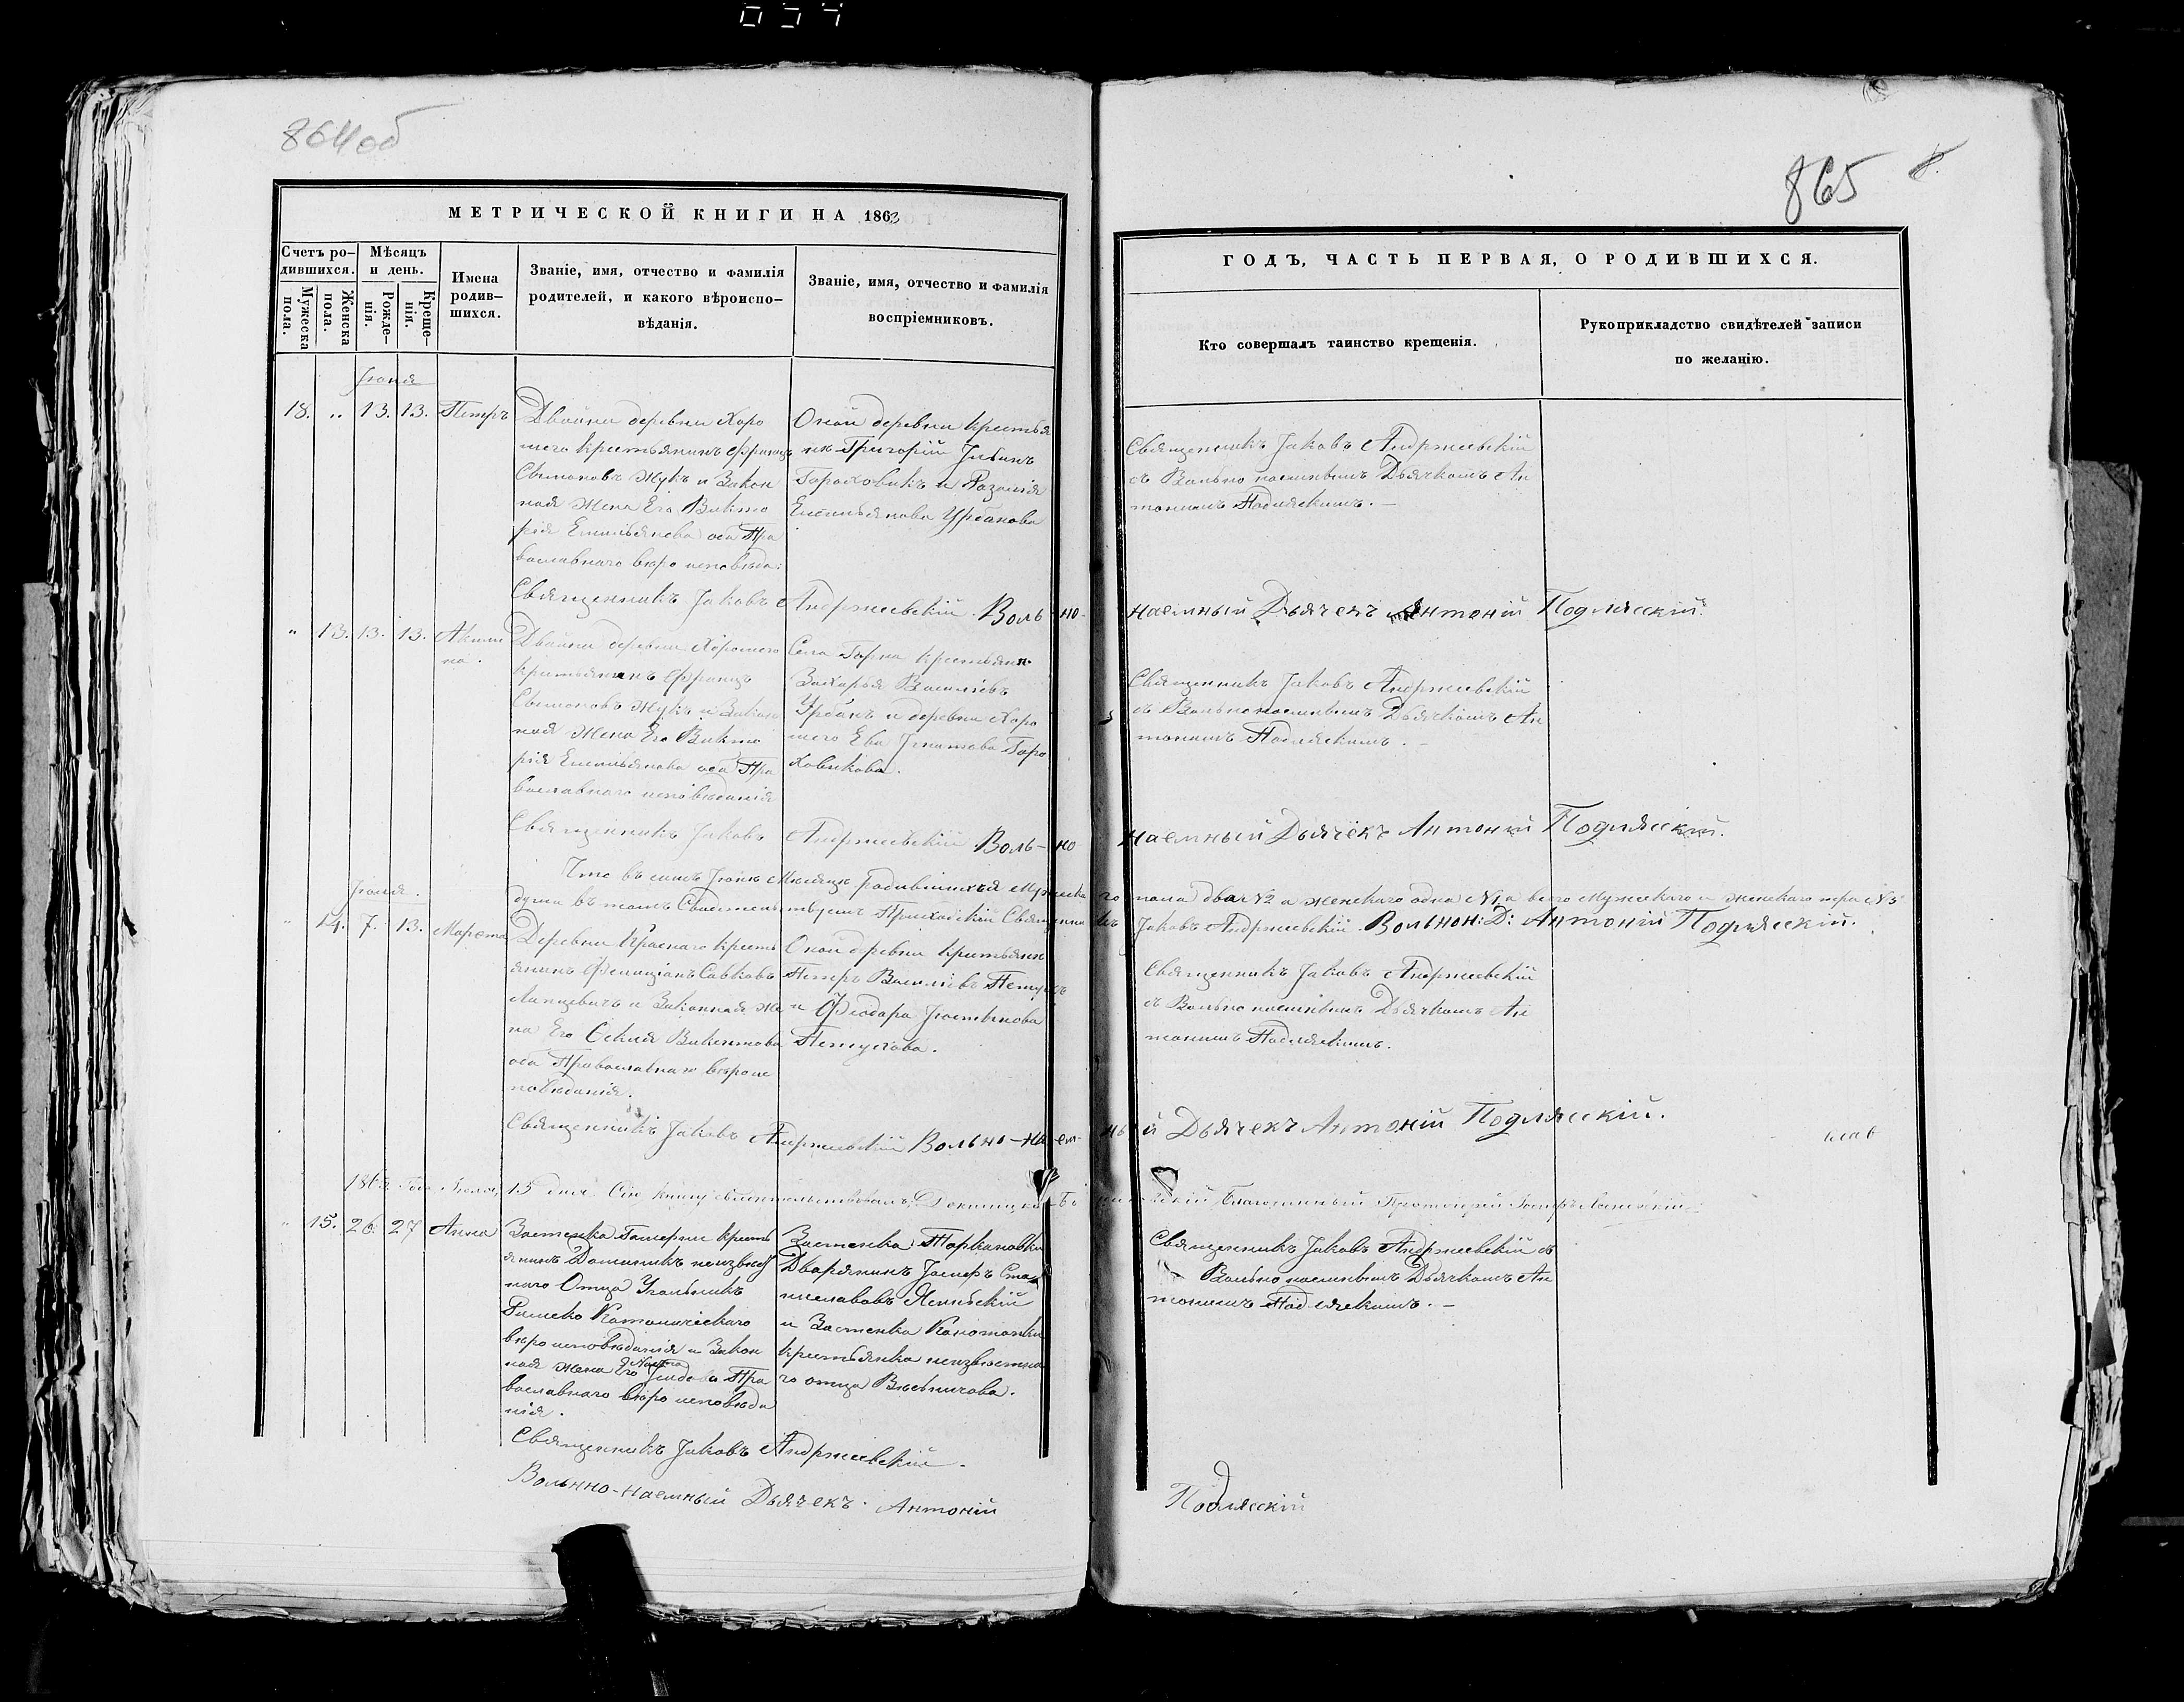 864об
865
МЕТРИЧЕСКОЙ КНИГИ НА 1863
ГОДЪ, ЧАСТЬ ПЕРВАЯ, О РОДИВШИХСЯ.
Счетъ ро-
дившихся.
Мужеска
пола.
Женска
пола.
Мѣсяцъ
и день.
Рожде-
нія.
Креще-
нія.
Имена
родив-
шихся.
Званіе, имя, отчество и фамилія
родителей, и какого вѣроиспо-
вѣданія.
Званіе, имя, отчество и фамилія
воспріемниковъ.
Кто совершалъ таинство крещенія.
Рукоприкладство свидѣтелей записи
по желанію.
Іюня
18. „ 13. 13. Петръ
Двойни деревни Хоро
шего крестьянинъ Францъ
Сымоновъ Жукъ и Закон
ная жена Его Викто
рія Емильянова оба Пра
вославнаго вѣроисповѣда:
Оной деревни крестья
нъ Григорій
Гороховикъ и Розалія
Емильянова Урбанова
Священникъ Іаковъ Андржеевскій
съ Вольнонаемнымъ Дьячкомъ Ан
тоніемъ Подляскимъ. —
Священникъ Іаковъ Андржеевскій Воль-но-
наемный Дьячекъ Антоній Подляскій.
„ 13. 13. 13. Акили
на.
Двойни деревни Хорошего
крестьянинъ Францъ
Сымоновъ Жукъ и Закон
ная жена Его Викто
рія Емильянова оба Пра
вославнаго исповѣданія
Села крестьянинъ
Захарья Васильевъ
Урбанъ и деревни Хоро
шего Ева Игнатова Горо
ховикова.
Священникъ Іаковъ Андржеевскій
съ Вольнонаемнымъ Дьячкомъ Ан
тоніемъ Подляскимъ. —
Священникъ Іаковъ Андржеевскій Воль-но
наемный Дьячекъ Антоній Подляскій.
Что въ семъ Іюнѣ мѣсяцѣ родившихся мужеска
го пола два №2 а женскаго одна №1, а всего мужескаго и женскаго три №3
душа въ томъ Свидетельствуемъ Приходскій Священни
къ Іаковъ Андржеевскій. Вольнон: Д: Антоній Подляскій.
Іюля.
„ 14. 7. 13. Марета
Деревни Краснаго кресть
янинъ Фелиціанъ Савковъ
и Законная же
на Его Викентова
оба Православнаго вѣроис
повѣданія.
Оной деревни крестьянинъ
Петръ Васильевъ Петухъ
и Ѳіодора Іюстынова
Петухова.
Священникъ Іаковъ Андржеевскій
съ Вольнонаемнымъ Дьячкомъ Ан
тоніемъ Подляскимъ.
Священникъ Іаковъ Андржеевскій Вольно-наем-
ный Дьячекъ Антоній Подляскій.
1863 Года Іюля, 15 дня. Сію книгу свидѣтельствовалъ, Докшицко-Бѣ
Благочинный Протоіерей
„ 15. 26. 27 Анна
Застенка кресть
янинъ Доминикъ неизвѣст
наго Отца
Римско Католическаго
вѣроисповѣданія и Закон
ная жена Его Пра
вославнаго вѣроисповѣда
нія.
Застенка
Дворянинъ Іосифъ Ста
ниславовъ
и Застенка
крестьянка неизвѣстна
го отца
Священникъ Іаковъ Андржеевскій съ
Вольнонаемнымъ Дьячкомъ Ан
тоніемъ Подляскимъ. —
Священникъ Іаковъ Андржеевскій.
Вольнно-наемный Дьячекъ. Антоній
Подляскій